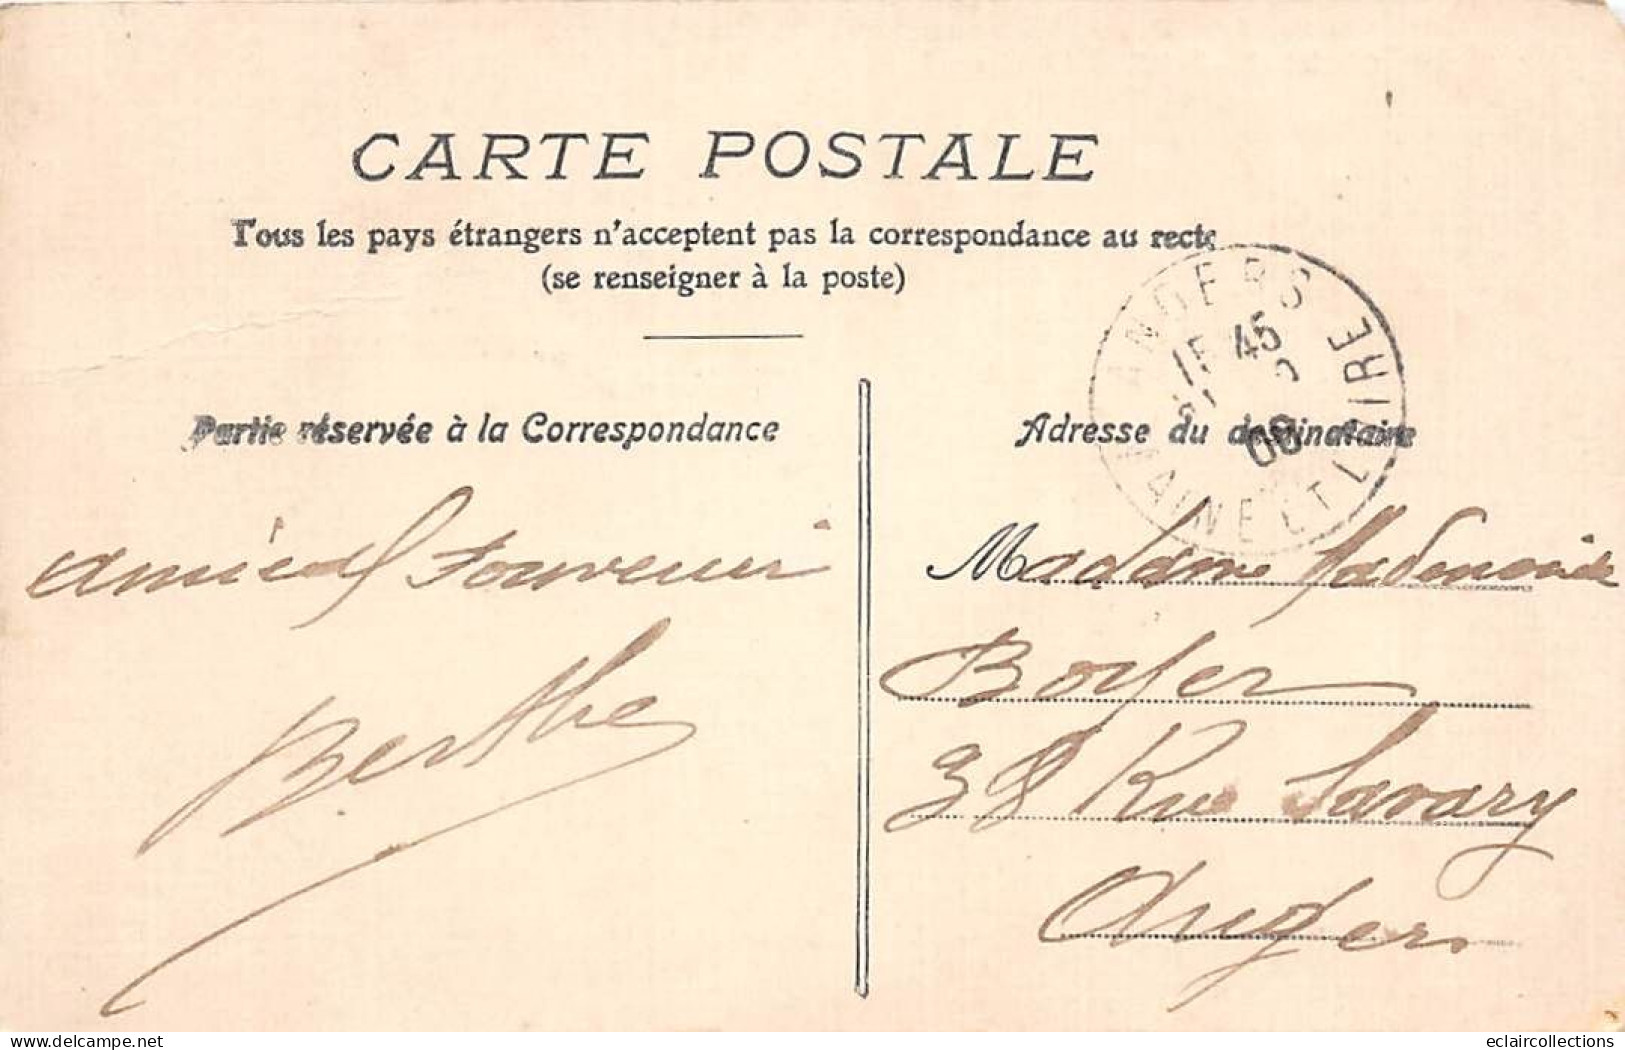 CARTE POSTALE
Tous les pays étrangers n'acceptent pas la correspondance au recto
(se renseigner à la poste)
ANGERS
15 45
08
MAINE ET LOIRE
Partie réservée à la Correspondance
Adresse du destinataire
amical souvenir
Berthe
Madame
Boyer
38 Rue Savary
Angers
eclaircollections